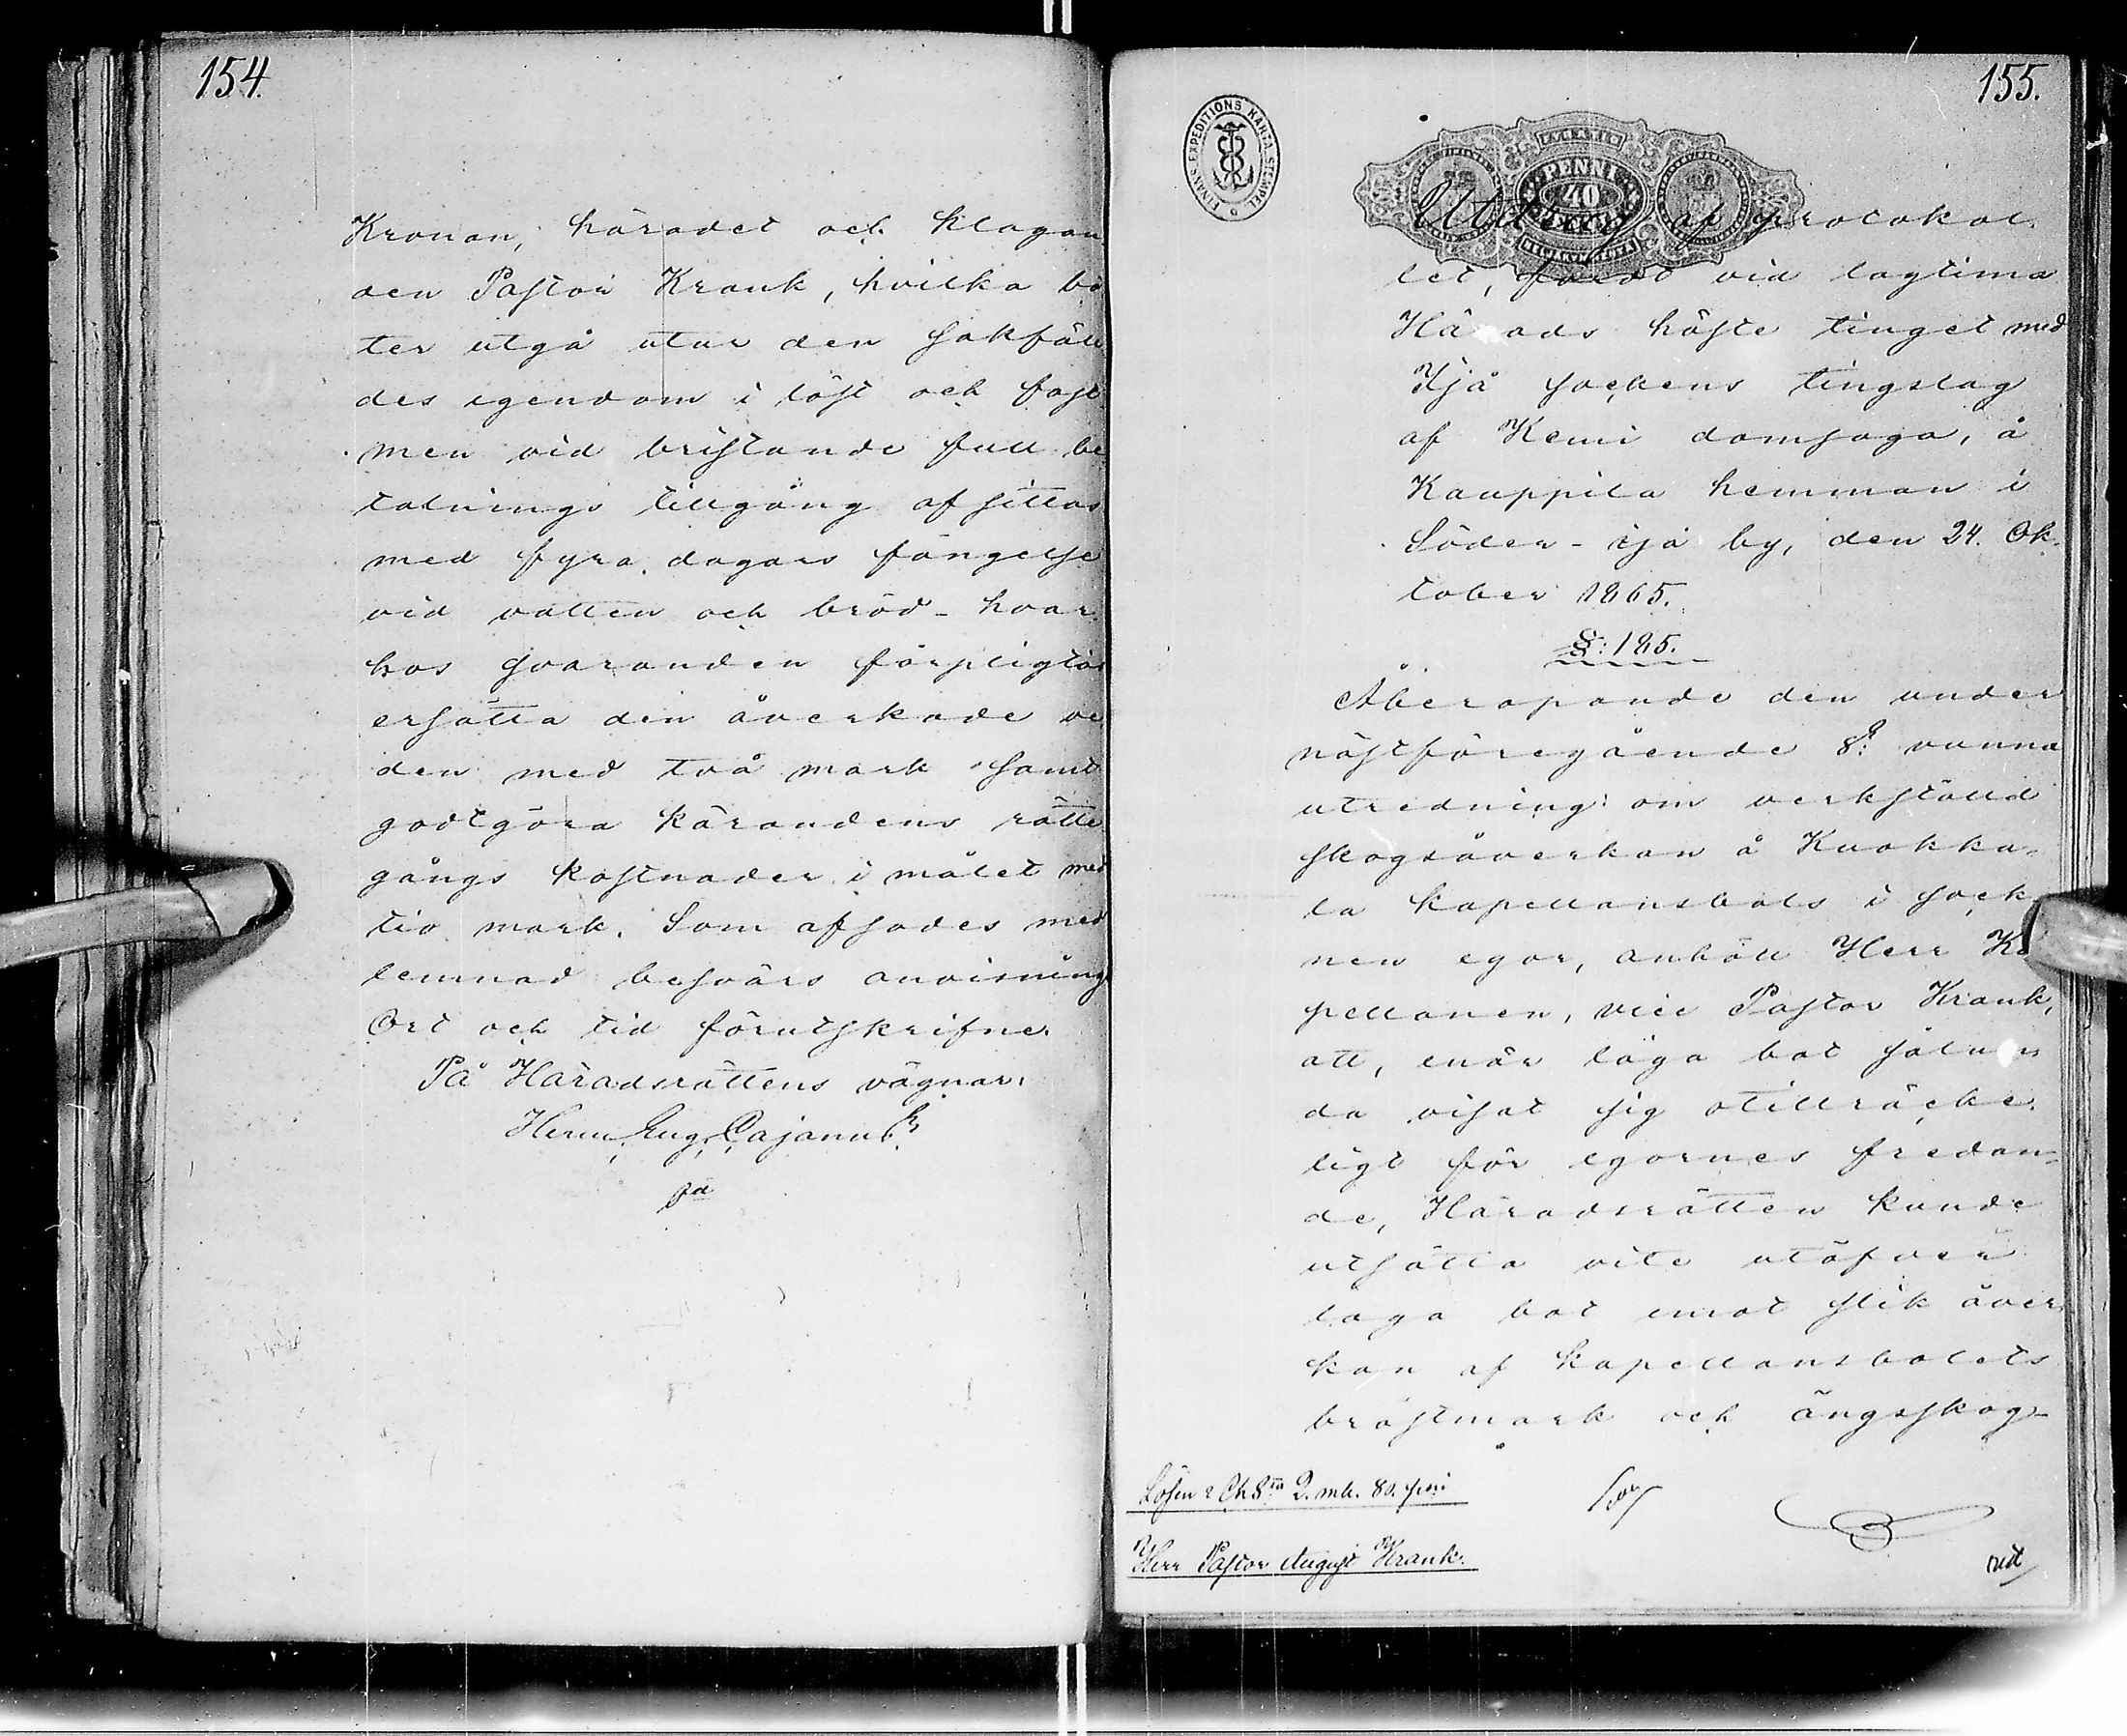 154.
Kronan, häradet och klagan
den Pastor Krank, hvilka bö
ter utgå utur den sakfäll
des egendom i löst och fast
men vid bristande full be
talnings tillgång afsittas
med fyra dagars fängelse
vid vatten och bröd - hvar
hos svaranden förpligtas
ersätta den åverkade ve
den med två mark samt
godtgöra kärandens rätte
gångs kostnader i målet med
tio mark. Som afsades med
lemnad besvärs anvisning
Ort och tid förutskrifne.
På Häradsrättens vägnar:
Herm Eug Cajanus
155.
FINANS EXPEDITIONS KARTA STEMPEL
PENNI
40
Utdrag af protokol
let, fördt vid lagtima
Härads höste tinget med
Ijå sockens tingslag
af Kemi domsaga, å
Kauppila hemman i
Söder-ijå by, den 24. Ok
tober 1865.
§: 185.
Åberopande den under
nästföregående §: vunna
utredning om verkställd
skogsåverkan å Kuokka-
la kapellansbols i sock
nen egor, anhöll Herr Ka
pellanen, vice Pastor Krank,
att, enär laga bot sålun
da visat sig otillräcke
ligt för egornes fredan-
de, Häradsrätten kunde
utsätta vite utöfver
laga bot emot slik åver
kan af kapellansbolets
bröstmark och ängsskog-
Lösen & Ch Sta 2. mk. 80. pni
Herr Pastor August Krank.